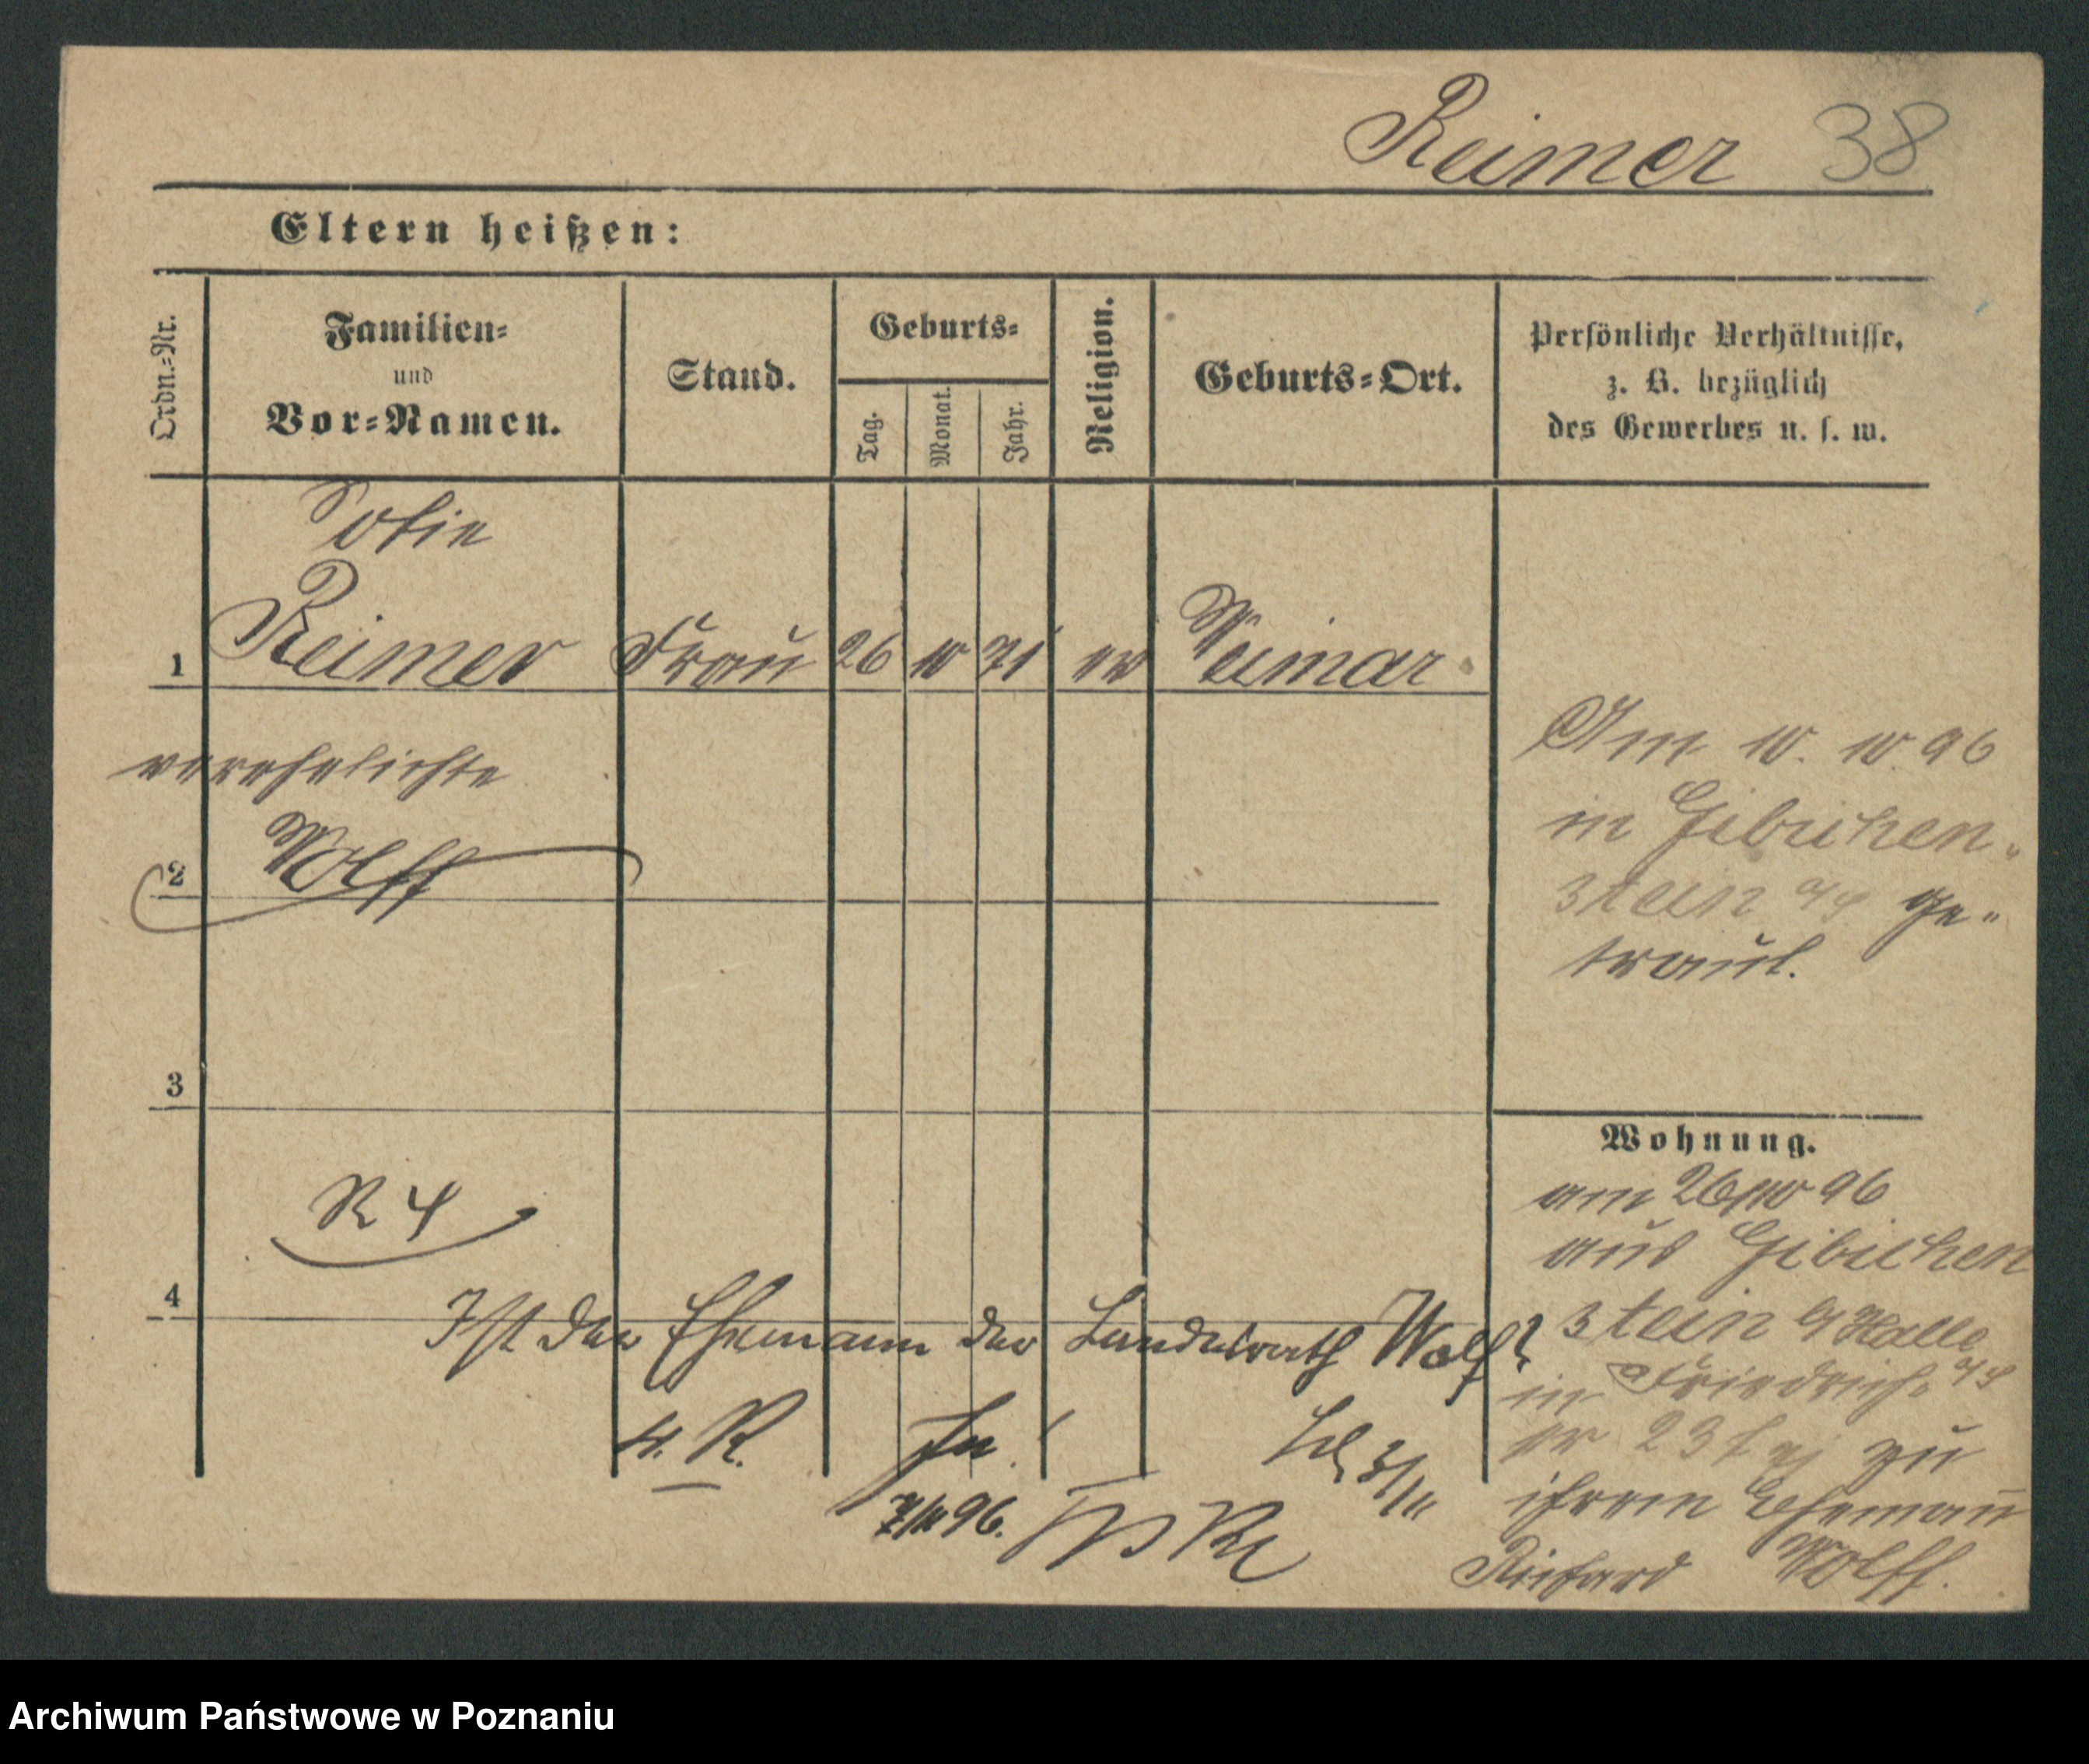 Reimer 38
Eltern heißen:
Ordn.=Nr.
Familien=
und
Vor=Namen.
Stand.
Geburts=
Tag.
Monat.
Jahr.
Religion.
Geburts=Ort.
Persönliche Verhältnisse,
z. B. bezüglich
des Gewerbes u. s. w.
Sofie
1 Reimer Frau 26 10 71 ev Weimar
verehelichte
2 Wolff
Am 10. 10. 96
in Gibichen-
stein a/S ge-
traut.
3
R 4
4
Wohnung.
am 26/10 96
aus Gibichen
stein b/Halle
a/S
in Friedrich-
er 23 zu
ihrem Eheman̄
Richard Wolff.
Ist der Ehemann der Landesrath Wolff?
4. R.
3/11
7/11 96.
Archiwum Państwowe w Poznaniu